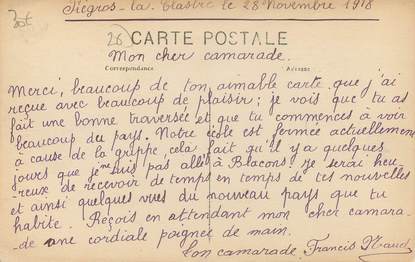 Piegros-la-Clastre le 28 Novembre 1918
26
CARTE POSTALE
Mon cher camarade.
Correspondance Adresse
Merci, beaucoup de ton aimable carte que j'ai
reçue avec beaucoup de plaisir; je vois que tu as
fait une bonne traversée et que tu commences à voir
beaucoup du pays. Notre école est fermée actuellement
à cause de la grippe cela fait qu'il y a quelques
jours que je suis pas allé à Blacons. je serai heu-
reux de recevoir de temps en temps de tes nouvelles
et ainsi quelques vues du nouveau pays que tu
habite. Reçois en attendant mon cher camara-
de une cordiale poignée de main.
Ton camarade Francis